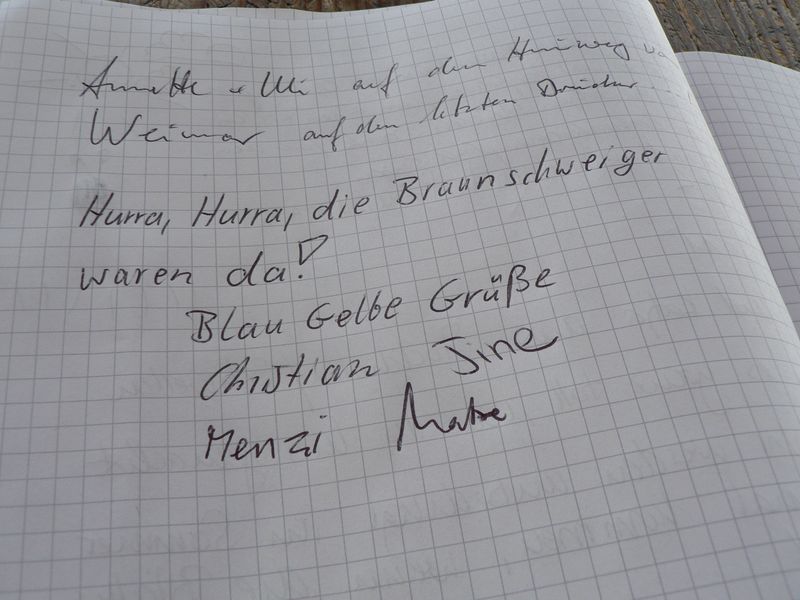 Annette + Uli auf dem
Weimar auf den letzten Drücker...
Hurra, Hurra, die Braunschweiger
waren da!
Blau Gelbe Grüße
Christian Jine
Menzi Matze